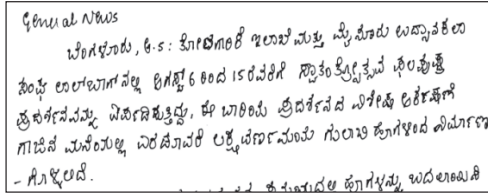 General News
ಬೆಂಗಳೂರು, ಆ.5: ತೋಟಗಾರಿಕೆ ಇಲಾಖೆ ಮತ್ತು ಮೈಸೂರು ಉದ್ಯಾನಕಲಾ
ಸಂಘ ಲಾಲ್‌ಬಾಗ್‌ನಲ್ಲಿ ಆಗಸ್ಟ್ 6 ರಿಂದ 15 ರವರೆಗೆ ಸ್ವಾತಂತ್ರ್ಯೋತ್ಸವ ಫಲಪುಷ್ಪ
ಪ್ರದರ್ಶನವನ್ನು ಏರ್ಪಡಿಸುತ್ತಿದ್ದು, ಈ ಬಾರಿಯ ಪ್ರದರ್ಶನದ ವಿಶೇಷ ಆಕರ್ಷಣೆ
ಗಾಜಿನ ಮನೆಯಲ್ಲಿ ಎರಡೂವರೆ ಲಕ್ಷ ವರ್ಣಮಯ ಗುಲಾಬಿ ಹೂಗಳಿಂದ ನಿರ್ಮಾಣ
- ಗೊಳ್ಳಲಿದೆ.
ಹೂಗಳನ್ನು ಬದಲಾಯಿಸಿ